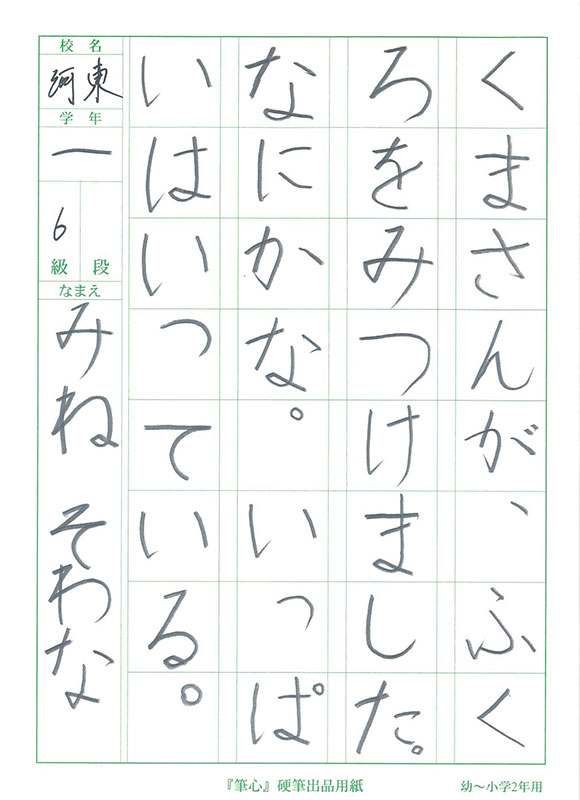 くまさんが、ふく
ろをみつけました。
なにかな。いっぱ
いはいっている。
校名
河東
学年
一
6
級 段
なまえ
みね そわな
『筆心』硬筆出品用紙
幼〜小学2年用